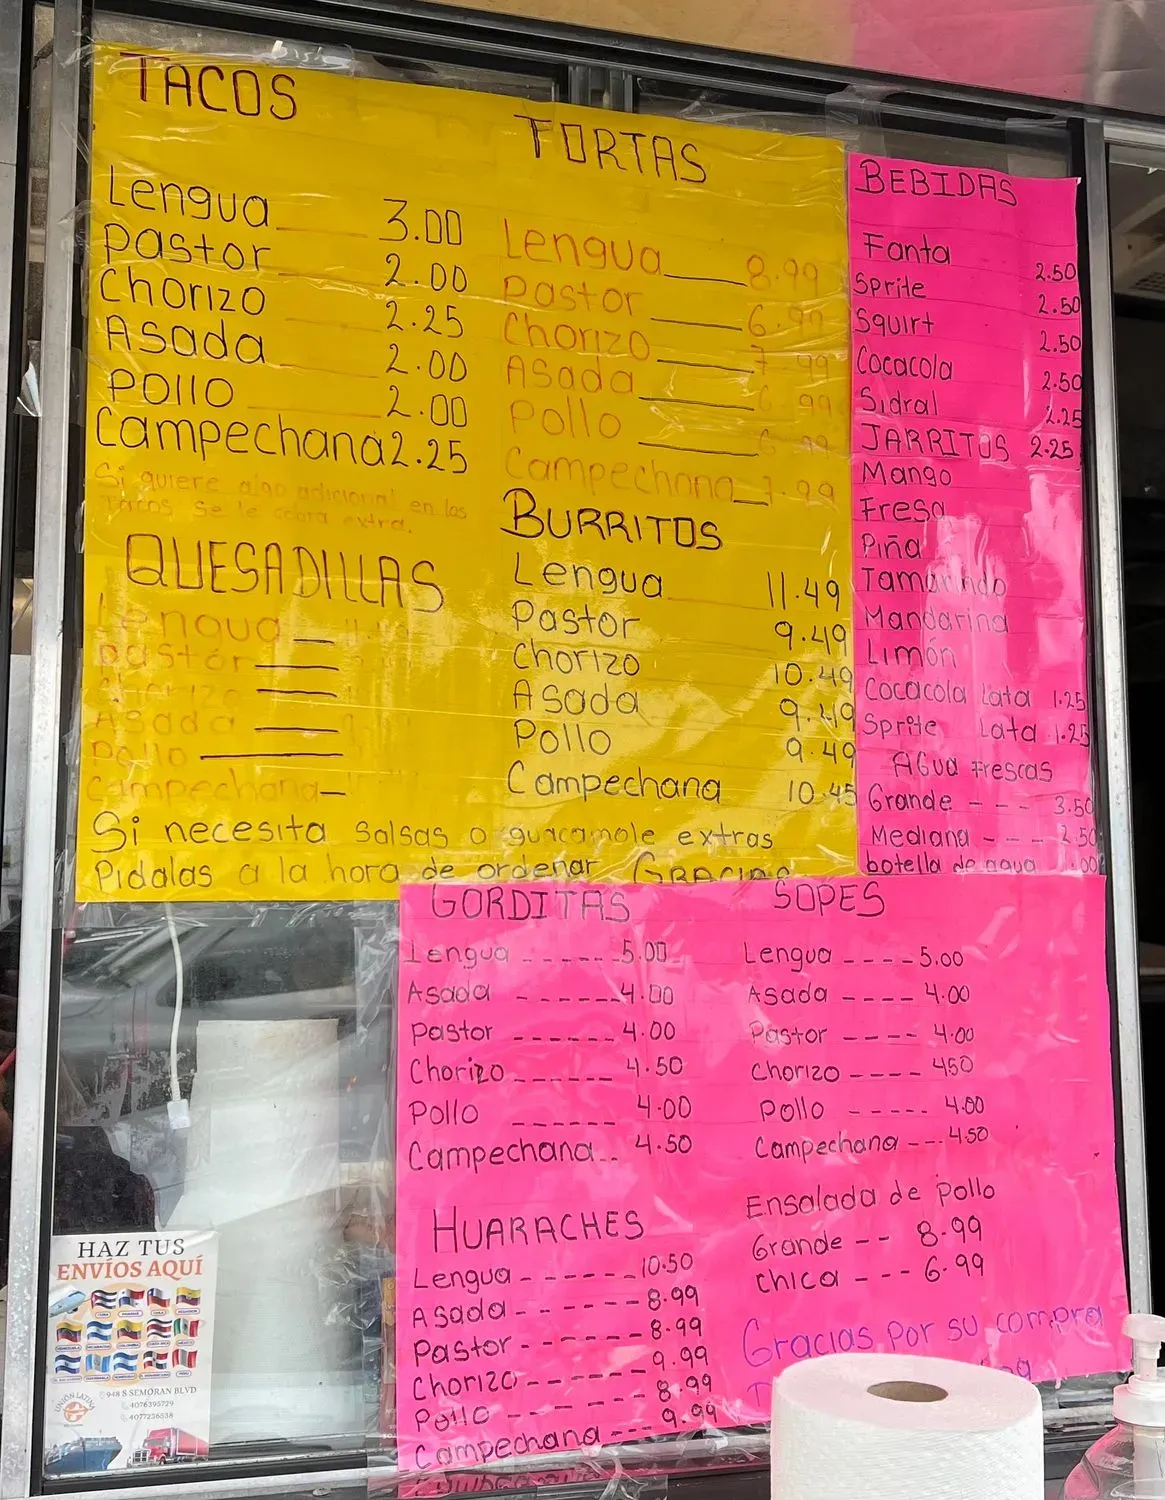 TACOS
Lengua 3.00
Pastor 2.00
Chorizo 2.25
Asada 2.00
Pollo 2.00
Campechana 2.25
Si quiere algo adicional en los
Tacos se le cobra extra.
QUESADILLAS
Lengua
Pastor
Chorizo
Asada
Pollo
Campechana
TORTAS
Lengua 8.99
Pastor 6.99
Chorizo 7.99
Asada 6.99
Pollo 6.99
Campechana 7.99
BURRITOS
Lengua 11.49
Pastor 9.49
Chorizo 10.49
Asada 9.49
Pollo 9.49
Campechana 10.45
Si necesita salsas o guacamole extras
Pidalas a la hora de ordenar GRACIAS
BEBIDAS
Fanta 2.50
Sprite 2.50
Squirt 2.50
Cocacola 2.50
Sidral 2.25
JARRITOS 2.25
Mango
Fresa
Piña
Tamarindo
Mandarina
Limón
Cocacola Lata 1.25
Sprite Lata 1.25
AGua Frescas
Grande - - - 3.50
Mediana - - - 2.50
botella de agua
GORDITAS
Lengua ------ 5.00
Asada ------ 4.00
Pastor ------ 4.00
Chorizo ------ 4.50
Pollo ------ 4.00
Campechana -- 4.50
HUARACHES
Lengua ------ 10.50
Asada ------ 8.99
Pastor ------ 8.99
Chorizo ------ 9.99
Pollo ------ 8.99
Campechana --- 9.99
SOPES
Lengua ---- 5.00
Asada ---- 4.00
Pastor ---- 4.00
Chorizo ---- 450
Pollo ----- 4.00
Campechana --- 4.50
Ensalada de pollo
Grande -- 8.99
chica --- 6.99
Gracias por su compra
HAZ TUS
ENVÍOS AQUÍ
UNIÓN LATINA
948 S SEMORAN BLVD
4076395729
4077236538